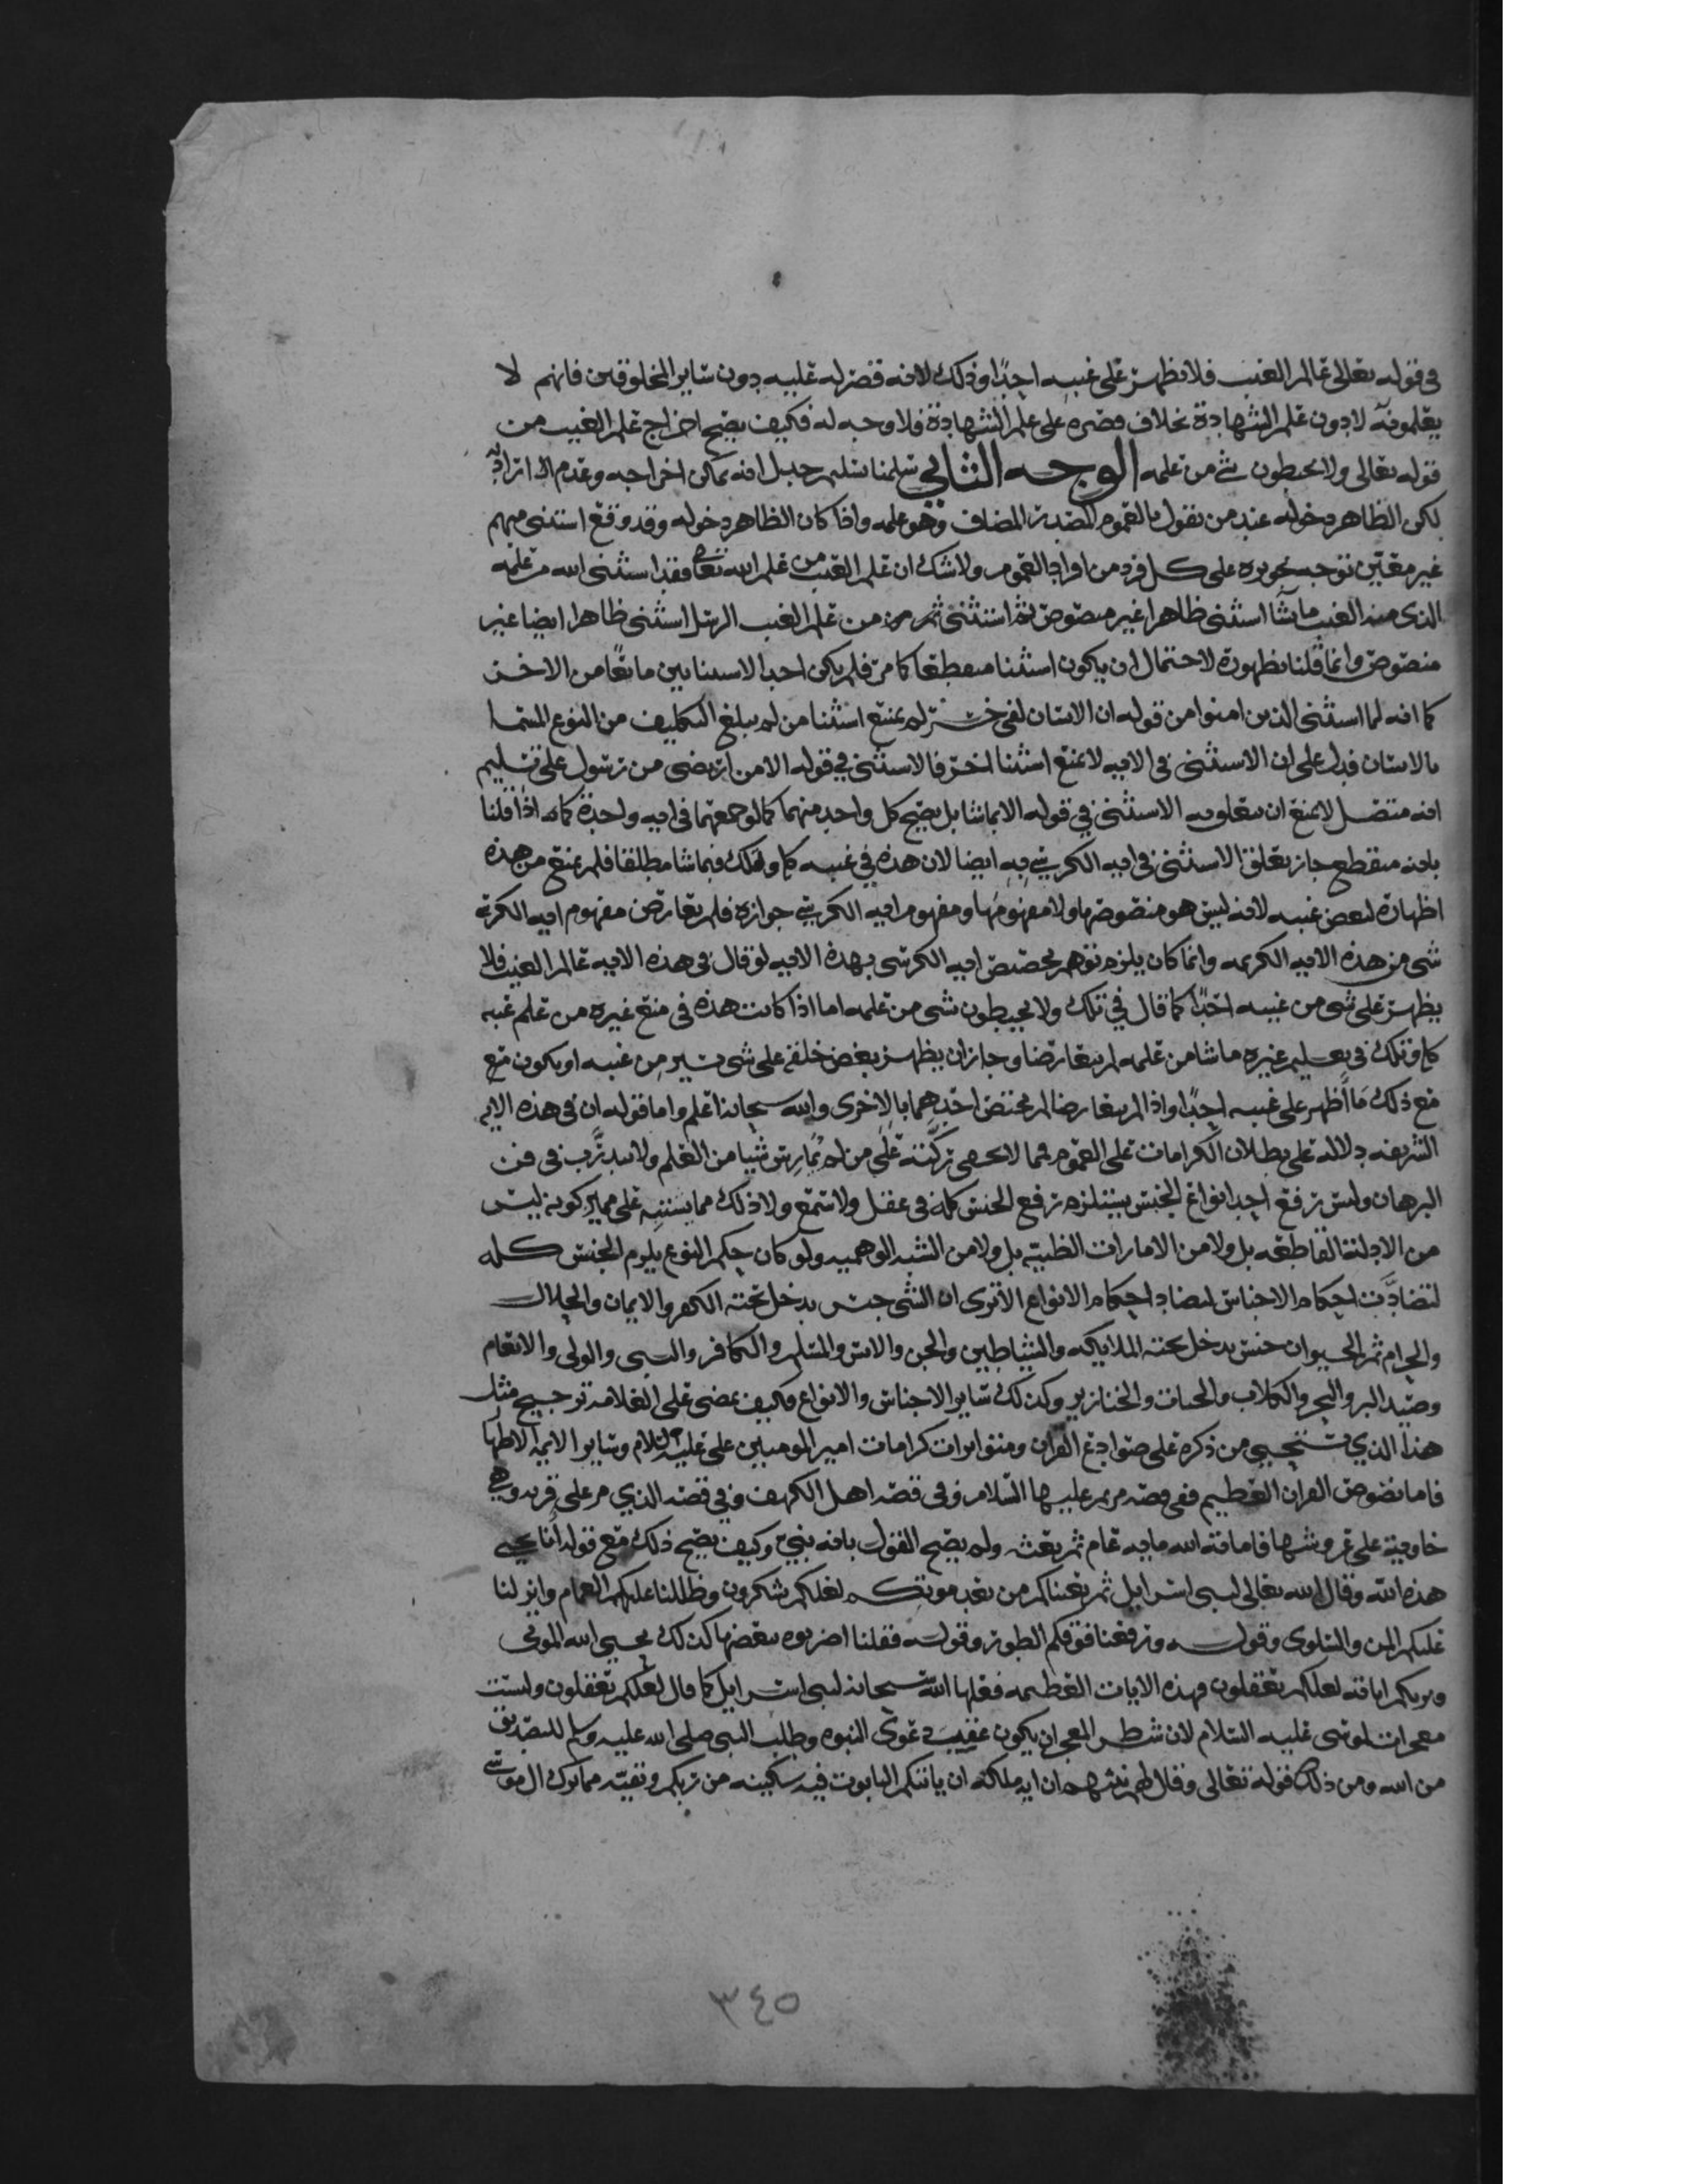 في قوله تعالى عالم الغيب فلا يظهر على غيبه احدا وذلك لانه قصر له عليه دون سائر المخلوقين فانهم لا
يعلمونه لا دون علم الشهادة بخلاف قصره على علم الشهادة فلا وجه له فكيف يصح اخراج علم الغيب من
قوله تعالى ولا يحيطون بشي من علمه الوجه الثاني سلمنا تسليم جدل انه يمكن اخراجه وعدم ارادته
لكن الظاهر دخوله عند من يقول بالعموم للمصدر المضاف وهو علمه واذا كان الظاهر دخوله وقد وقع استثنى مبهم
غير معين توجه تجويزه على كل فرد من افراد العموم ولا شك ان علم الغيب من علم الله تعالى فقد استثنى الله من علمه
الذي منه الغيب ما شا استثنى ظاهرا غير منصوص ثم استثنى من علم الغيب الرسل استثنى ظاهرا ايضا غير
منصوص وانما قلنا بظهوره لاحتمال ان يكون استثنا منقطعا كما مر فلم يكن احد الاستثنايين مانعا من الاخر
كما انه لما استثنى الذين امنوا من قوله ان الانسان لفي خسر لم يمنع استثنا من لم يبلغ التكليف من النوع المسما
بالانسان فدل على ان الاستثنى في الايه لا يمنع استثنا اخر فالاستثنى في قوله الا من ارتضى من رسول على تسليم
انه متصل لا يمنع ان يتعلق به الاستثنى في قوله الا بما شا بل يصح كل واحد منهما كما لو جمعهما في ايه واحدة كما انه اذا قلنا
بانه منقطع جاز تعلق الاستثنى في ايه الكرسي به ايضا لان هذه في غيبه كله وتلك فيما شا مطلقا فلم يمنع من هذه
اظهاره لبعض غيبه لانه ليس هو منصوصها ولا مفهومها ومفهوم ايه الكرسي جوازه فلم يعارض مفهوم ايه الكرسي
شي من هذه الايه الكريمه وانما كان يلزم توهم تخصيص ايه الكرسي بهذه الايه لو قال في هذه الايه عالم الغيب فلا
يظهر على شي من غيبه احدا كما قال في تلك ولا يحيطون بشي من علمه اما اذا كانت هذه في منع غيره من علم غيبه
كله وتلك في تعليم غيره ما شا من علمه لم يتعارضا وجاز ان يظهر بعض خلقه على شي يسير من غيبه او يكون مع
مع ذلك ما اظهر على غيبه احدا واذا لم يتعارضا لم يختص احدهما بالاخرى والله سبحانه اعلم واما قوله ان في هذه الايه
الشريفه دلاله على بطلان الكرامات على العموم فمما لا يخفى ركته على من لم يمارس شيا من العلم ولا تدرب في فن
البرهان وليس رفع احد انواع الجنس يستلزم رفع الجنس كله في عقل ولا سمع ولا ذلك مما يستنبه على مميز كونه ليس
من الادلة القاطعه بل ولا من الامارات الظنيه بل ولا من الشبه الوهميه ولو كان حكم النوع يلزم الجنس كله
لتضادت احكام الاجناس لتضاد احكام الانواع الا ترى ان الشي جنس يدخل تحته الكفر والايمان والحلال
والحرام ثم الحيوان جنس يدخل تحته الملايكه والشياطين والجن والانس والمسلم والكافر والنبي والولي والانعام
وصيد البر والبحر والكلاب والحيات والخنازير وكذلك سائر الاجناس والانواع فكيف يمضى على العلامه ترجيح مثل
هذا الذي يستحيى من ذكره على صوادع القران ومتواترات كرامات امير المومنين علي عليه السلام وسائر الايمه الاطهار
فاما نصوص القران العظيم ففي قصه مريم عليها السلام وفي قصه اهل الكهف وفي قصه الذي مر على قريه وهي
خاويه على عروشها فاماته الله مايه عام ثم بعثه ولم يصح القول بانه نبي وكيف يصح ذلك مع قوله انا يحيي
هذه الله وقال الله تعالى لبني اسرايل ثم بعثناكم من بعد موتكم لعلكم تشكرون وظللنا عليكم الغمام وانزلنا
عليكم المن والسلوى وقوله ورفعنا فوقكم الطور وقوله فقلنا اضربوه ببعضها كذلك يحيي الله الموتى
ويريكم اياته لعلكم تعقلون فهذه الايات العظيمه فعلها الله سبحانه لبني اسرايل كما قال لعلكم تعقلون وليست
معجزات لموسى عليه السلام لان شطر المعجز ان يكون عقيب دعوى النبوه وطلب النبي صلى الله عليه وسلم للتصديق
من الله ومن ذلك قوله تعالى وقال لهم نبيهم ان ايه ملكه ان ياتيكم التابوت فيه سكينه من ربكم وبقيه مما ترك ال موسى
٣٤٥